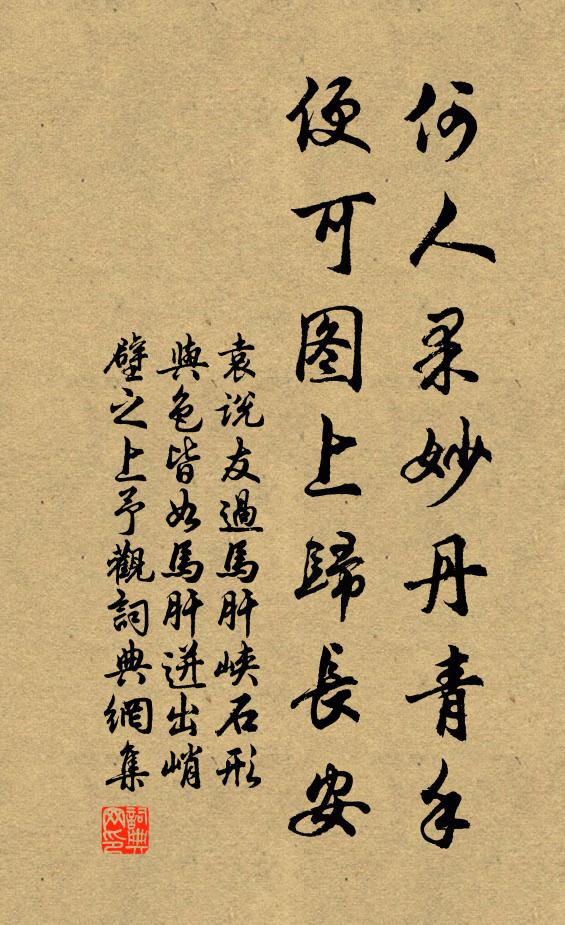 何人果妙丹青手
便可图上歸長安
袁说友過馬肝峽石形
與色皆如馬肝迸出峭
壁之上予觀詞典網集
詞典网印